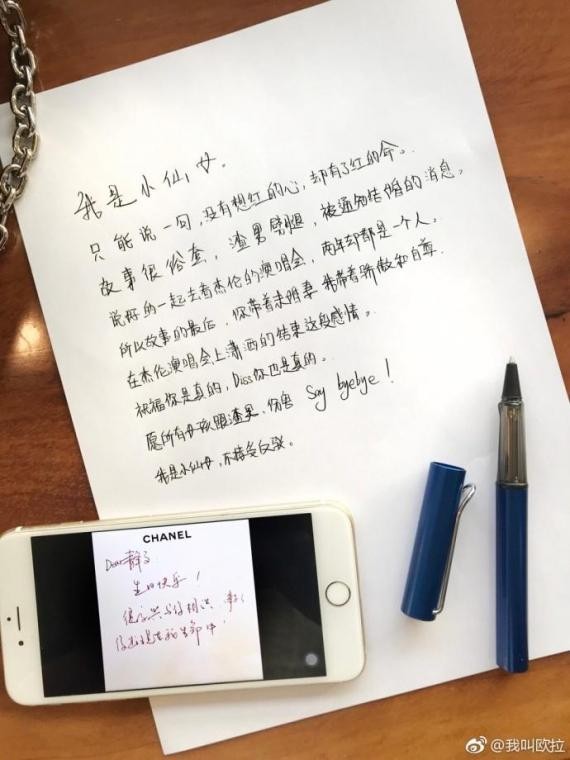 我是小仙女。
只能说一句，没有想红的心，却有了红的命。
故事很俗套，渣男劈腿，被通知结婚的消息。
说好的一起去看杰伦的演唱会，两年却都是一个人。
所以故事的最后，你带着未婚妻 我带着骄傲和自尊
在杰伦演唱会上潇洒的结束这段感情。
祝福你是真的，Diss你也是真的。
愿所有女孩跟渣男、伤害 Say byebye！
我是小仙女，不接受反驳。
CHANEL
Dear
生日快乐！
@我叫欧拉